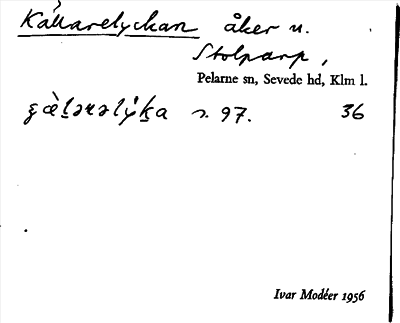 Källarelyckan åker u.
Stolparp,
Pelarne sn, Sevede hd, Klm l.
s. 97. 36
Ivar Modéer 1956